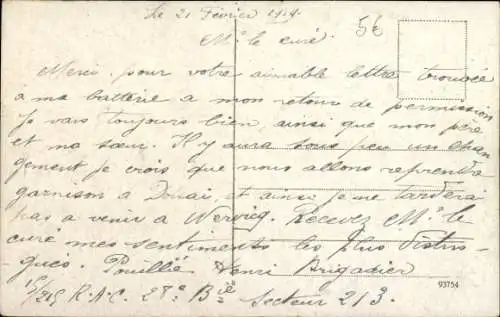 Le 21 Février 1919.
56
Mr le curé.
Merci pour votre aimable lettre trouvée
à ma batterie a mon retour de permission
Je vais toujours bien, ainsi que mon père
et ma sœur. Il y aura sous peu un chan
gement je crois que nous allons reprendre
garnison a Douai et ainsi je ne tarderai
pas a venir a Wervicq. Recevez Mr le
curé mes sentiments les plus distin
gués. Pouillie Henri Brigadier
R.A.C. 28e Bie Secteur 213.
93754